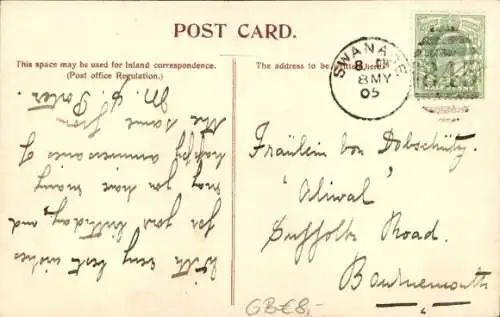 POST CARD.
This space may be used for Inland correspondence.
(Post office Regulation.)
The address to be written here.
With very best wishes
for your birthday, and
may you have many
happy anniversaries of
the same from
M. S. Porter.
SWANAGE
8 MY
05
Fräulein von Dobschütz.
"Aliwal"
Suffolk Road.
Bournemouth
GB€8,-